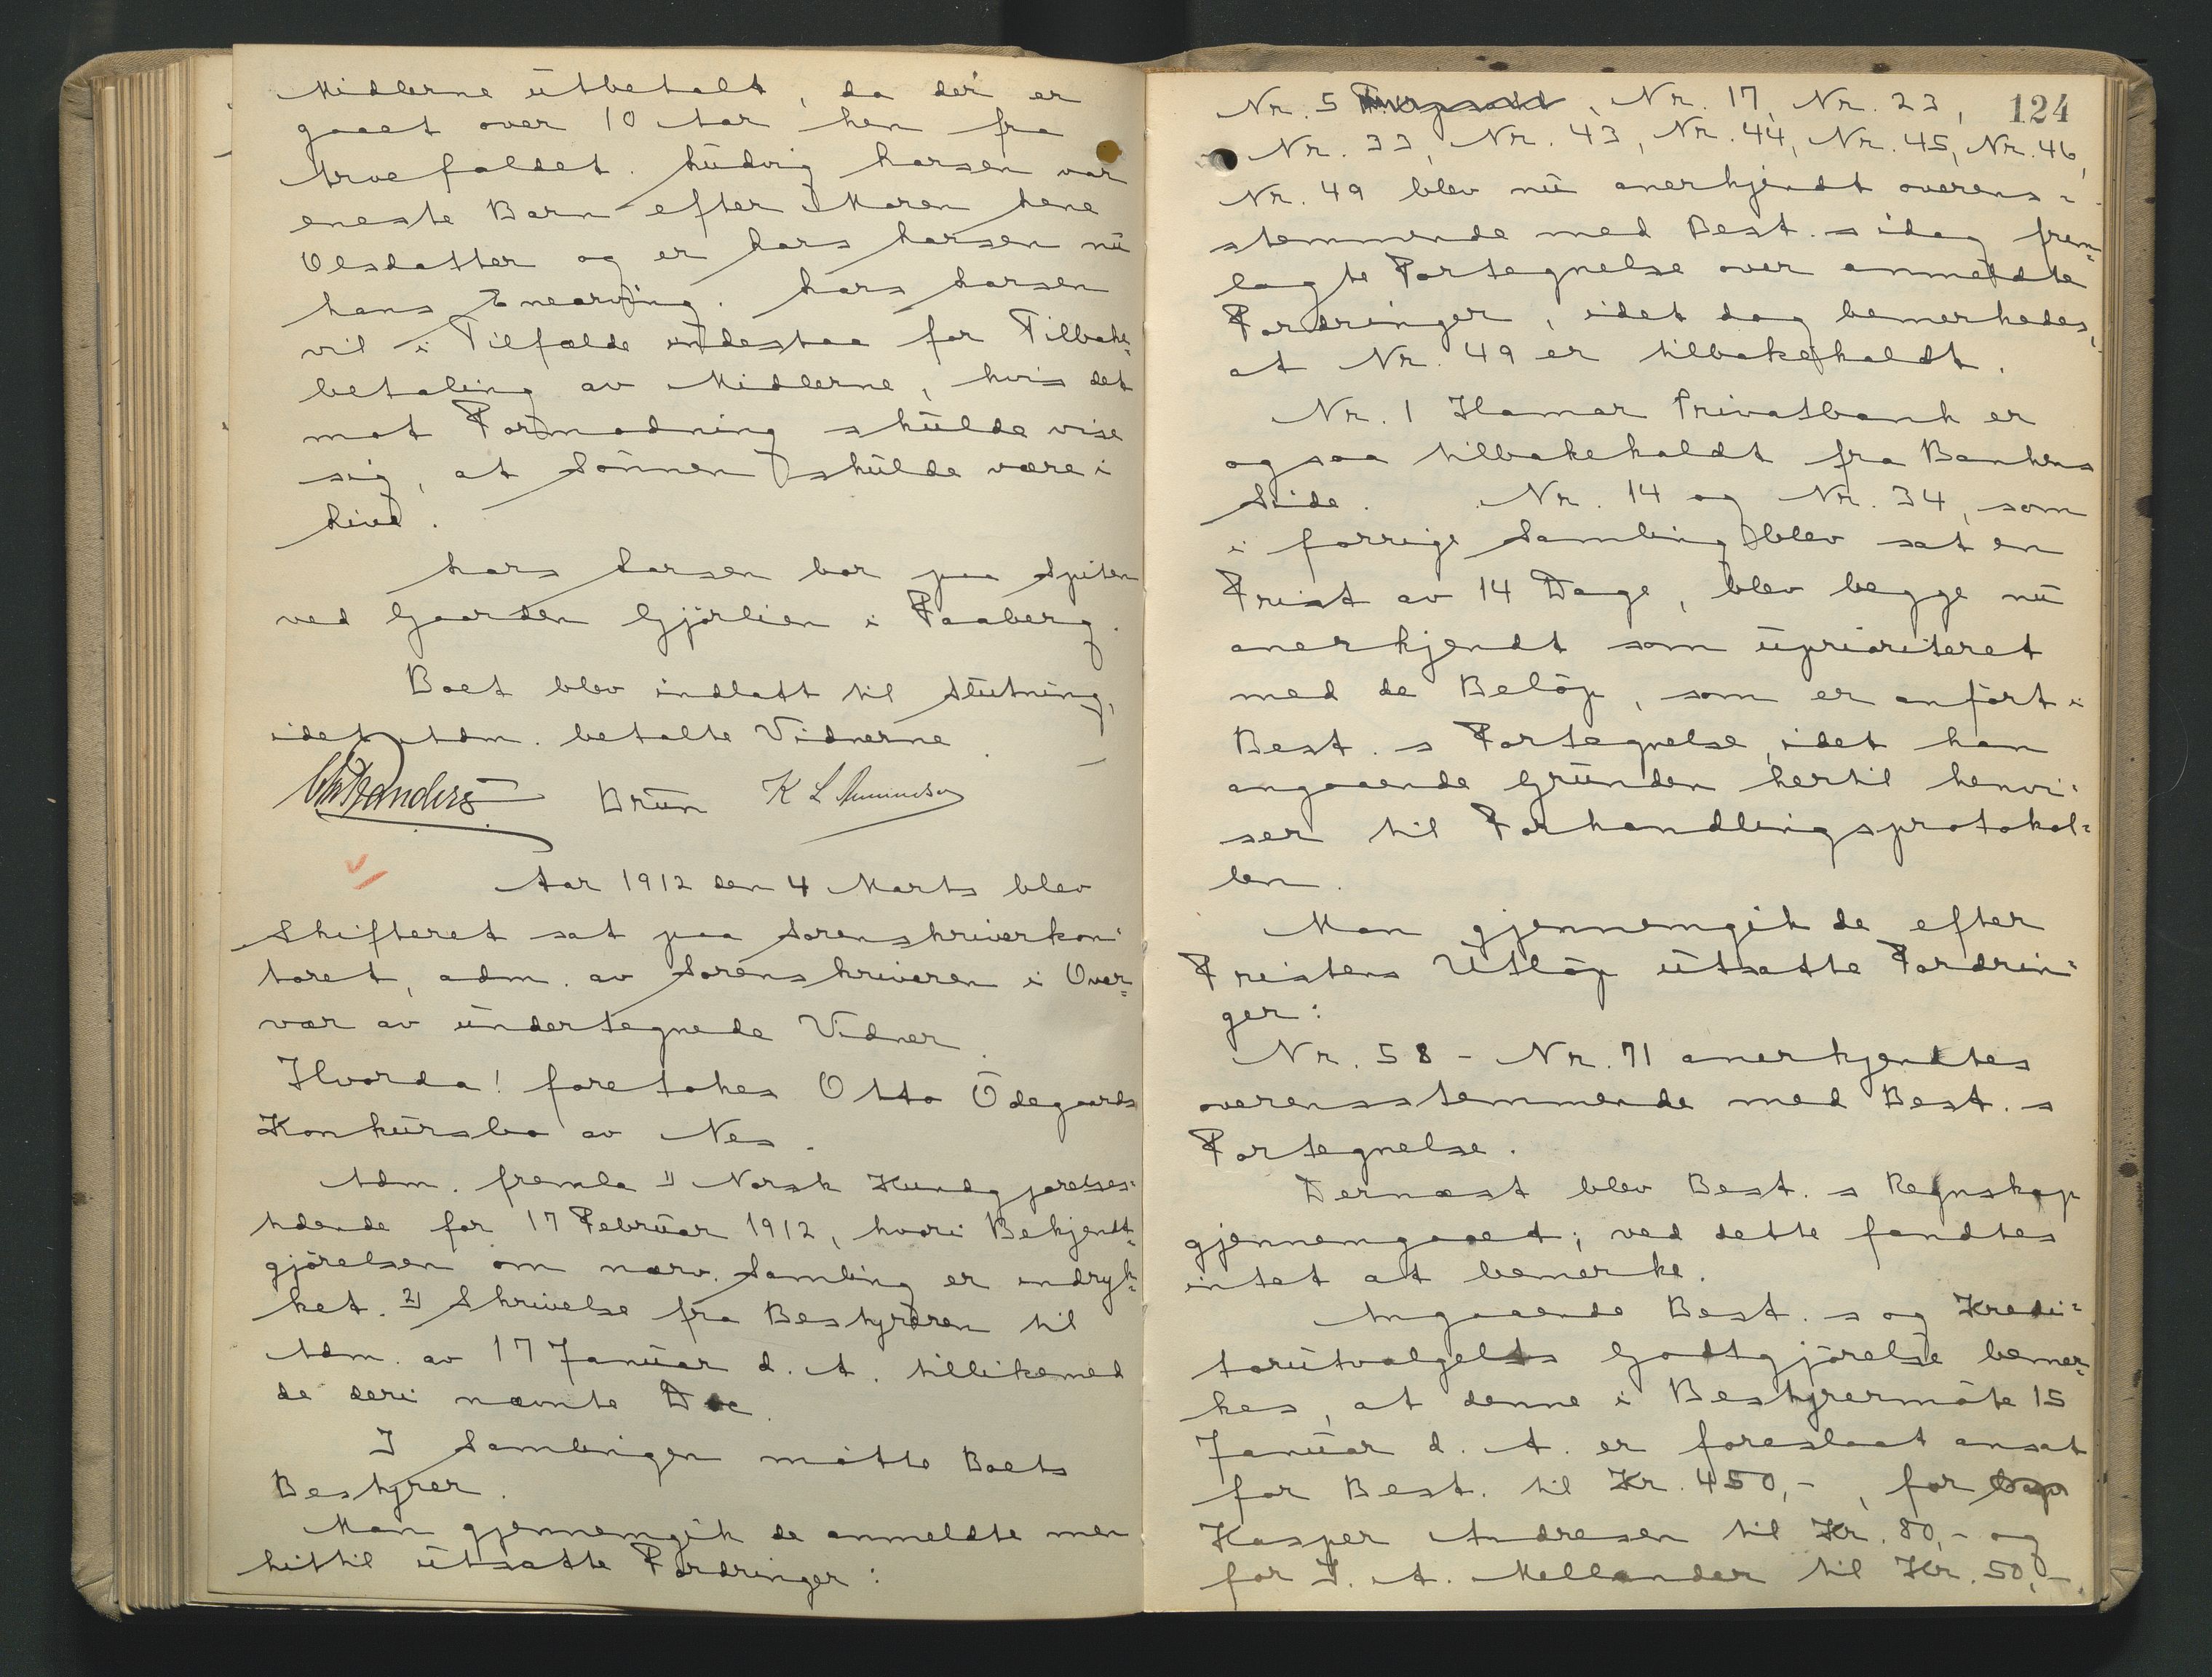 Midlerne utbetalt, da der er
gaaet over 10 Aar hen fra
Arvefaldet. Ludvig Larsen var
eneste Barn efter Maren Lene
Olsdatter og er Lars Larsen nu
hans Enearving. Lars Larsen
vil i Tilfælde indestaa for Tilbake-
betaling av Midlerne, hvis det
mot Formodning skulde vise
sig, at Sønnen skulde være i
Live.
Lars Larsen bor paa Spiten
ved Gaarden Gjørlien i Faaberg.
Boet blev indlatt til Slutning,
idet Adm. betalte Vidnerne.
Brun K L Amundsen
Aar 1912 den 4 Marts blev
Skifteret sat paa Sorenskriverkon-
toret, adm. av Sorenskriveren i Over-
vær av undertegnede Vidner.
Hvorda! foretokes Otto Ödegaards
Konkursbo av Nes.
Adm. fremla 1) Norsk Kundgjørelses-
tidende for 17 Februar 1912, hvori Bekjendt-
gjörelsen om nærv. Samling er indryk-
ket. 2) Skrivelse fra Bestyreren til
Adm. av 17 Januar d. A. tillikemed
de deri nævnte Doc.
I Samlingen mötte Boets
Bestyrer.
Man gjennemgik de anmeldte men
hittil utsatte Fordringer:
124
Nr. 5, Nr. 17, Nr. 23,
Nr. 33, Nr. 43, Nr. 44, Nr. 45, Nr. 46,
Nr. 49 blev nu anerkjendt overens-
stemmende med Best.s idag frem-
lagte Fortegnelse over anmeldte
Fordringer, idet dog bemerkedes,
at Nr. 49 er tilbakeholdt.
Nr. 1 Hamar Privatbank er
ogsaa tilbakeholdt fra Bankens
Side. Nr. 14 og Nr. 34, som
i forrige Samling blev sat en
Frist av 14 Dage, blev begge nu
anerkjendt som uprioriteret
med de Belöp, som er anfört i
Best.s Fortegnelse, idet han
angaaende Grunden hertil henvi-
ser til Forhandlingsprotokol-
len.
Man gjennemgik de efter
Fristens Utlöp utsatte Fordrin-
ger:
Nr. 58 - Nr. 71 anerkjendtes
overensstemmende med Best.s
Fortegnelse.
Dernæst blev Best.s Regnskap
gjennemgaaet; ved dette fandtes
intet at bemerke.
Angaaende Best.s og Kredi-
torutvalgets Godtgjörelse bemer-
kes, at denne i Bestyrermöte 15
Januar d. A. er foreslaat ansat
for Best. til Kr. 450,-, for
Kasper Andresen til Kr. 80,- og
for I. A. Mellander til Kr. 50,-.